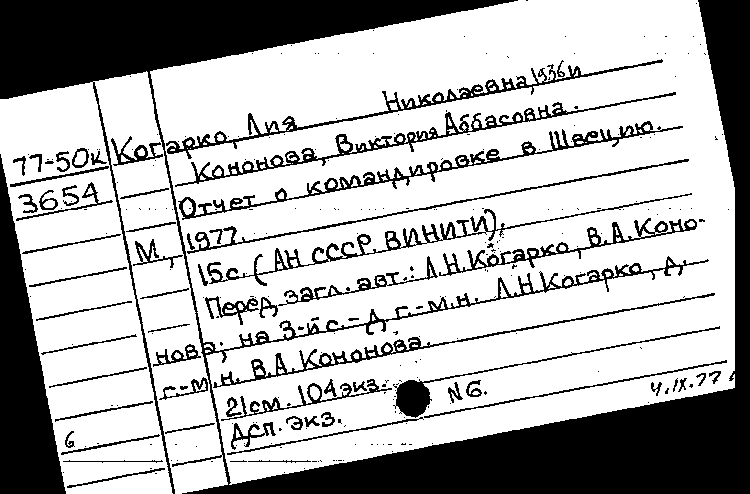 77-50к
3654
Когарко, Лия Николаевна, 1936 и
Кононова, Виктория Аббасовна.
Отчет о командировке в Швецию.
М., 1977.
15с. (АН СССР. ВИНИТИ).
Перед загл. авт.: Л.Н.Когарко, В.А.Коно-
нова; на 3-й с.-д. г.-м.н. Л.Н.Когарко, д.
г.-м.н. В.А.Кононова.
21см. 104экз.
Дсп. экз. NG.
4.IX.77
6